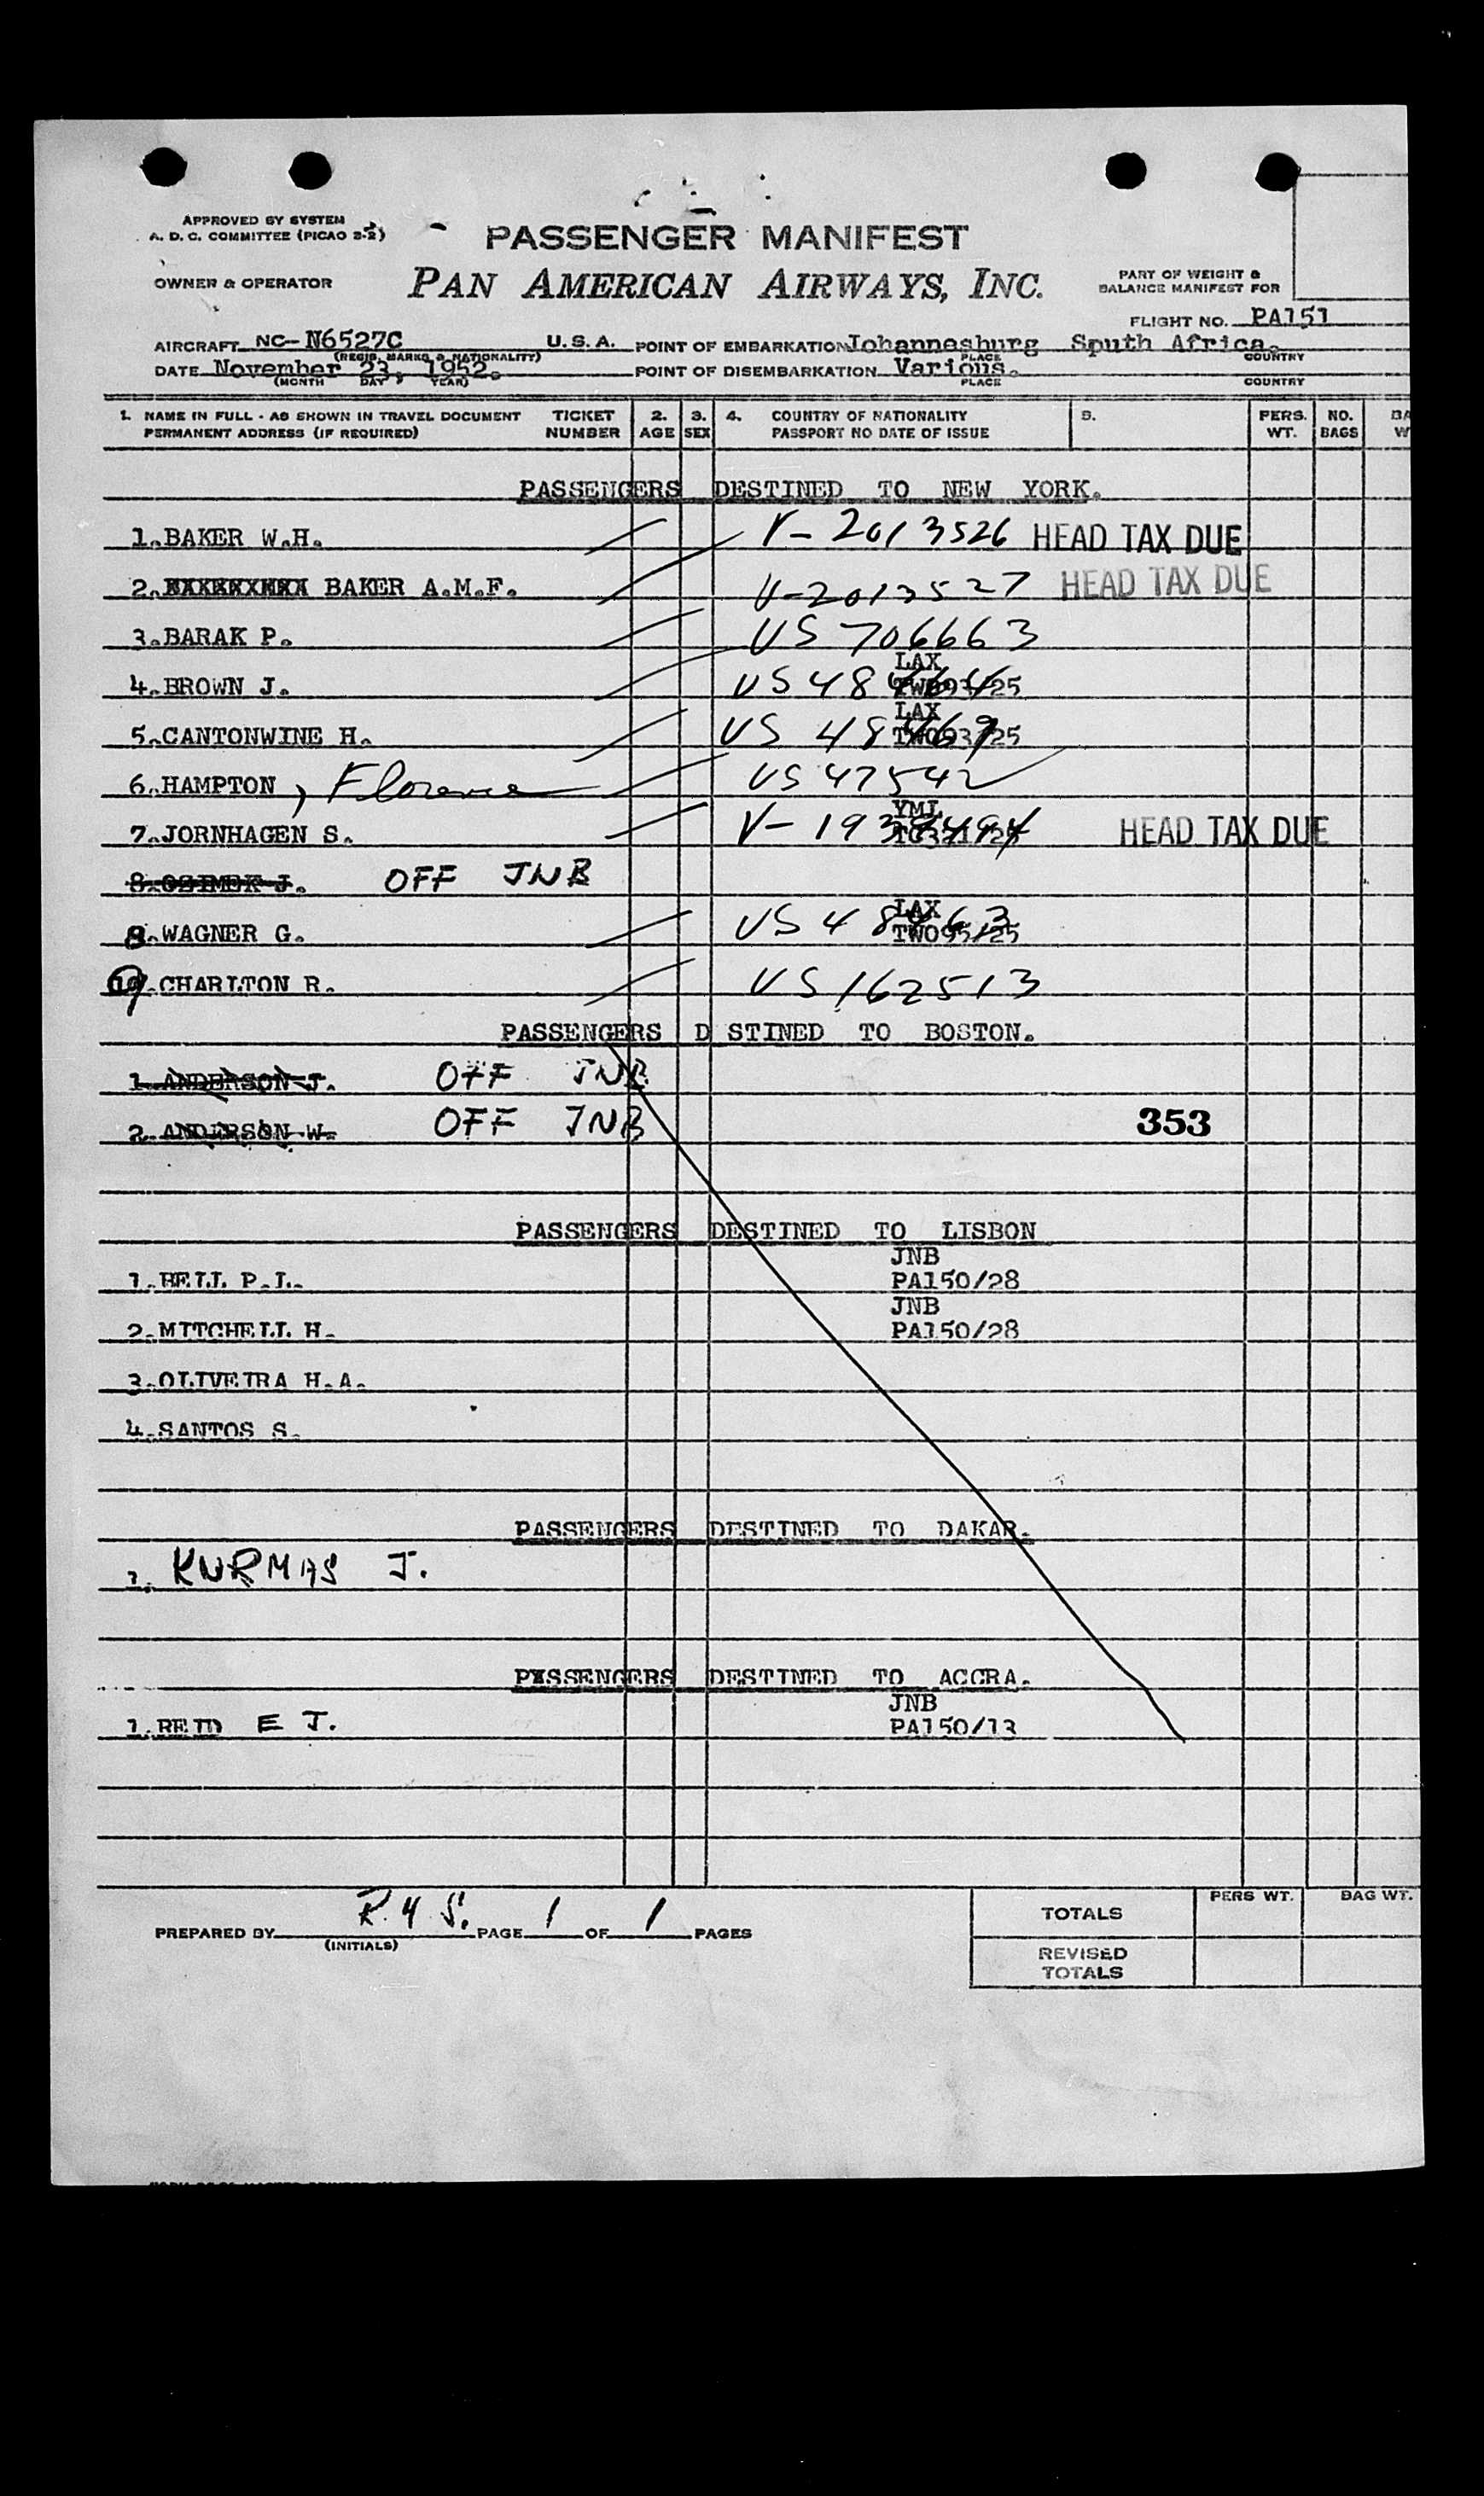 APPROVED BY SYSTEM
A. D. C. COMMITTEE (PICAO 2-2)
PASSENGER MANIFEST
OWNER & OPERATOR
PAN AMERICAN AIRWAYS, INC.
PART OF WEIGHT &
BALANCE MANIFEST FOR
FLIGHT NO. PA151
AIRCRAFT NC-N6527C U.S.A. POINT OF EMBARKATION Johannesburg South Africa.
(REGIS. MARKS & NATIONALITY) PLACE COUNTRY
DATE November 23, 1952. POINT OF DISEMBARKATION Various.
(MONTH DAY YEAR) PLACE COUNTRY
1. NAME IN FULL - AS SHOWN IN TRAVEL DOCUMENT TICKET 2. 3. 4. COUNTRY OF NATIONALITY 5. PERS. NO. BA
PERMANENT ADDRESS (IF REQUIRED) NUMBER AGE SEX PASSPORT NO DATE OF ISSUE WT. BAGS W
PASSENGERS DESTINED TO NEW YORK.
1.BAKER W.H. V-2013526 HEAD TAX DUE
2. BAKER A.M.F. V-2013527 HEAD TAX DUE
3.BARAK P. US 706663
LAX
4.BROWN J. US
LAX
5.CANTONWINE H. US
6.HAMPTON, Florence US 47542
YML
7.JORNHAGEN S. V- HEAD TAX DUE
8.OZIMEK J. OFF JNB
LAX
8.WAGNER G. US TW095/25
9.CHARLTON R. US 162513
PASSENGERS D STINED TO BOSTON.
1.ANDERSON J. OFF JNB
2.ANDERSON W. OFF JNB 353
PASSENGERS DESTINED TO LISBON
JNB
1.BELL P.L. PA150/28
JNB
2.MITCHELL H. PA150/28
3.OLIVEIRA H.A.
4.SANTOS S.
PASSENGERS DESTINED TO DAKAR.
1. KURMAS J.
PASSENGERS DESTINED TO ACCRA.
JNB
1.REID E J. PA150/13
PREPARED BY PAGE 1 OF 1 PAGES
(INITIALS)
PERS WT. BAG WT.
TOTALS
REVISED
TOTALS